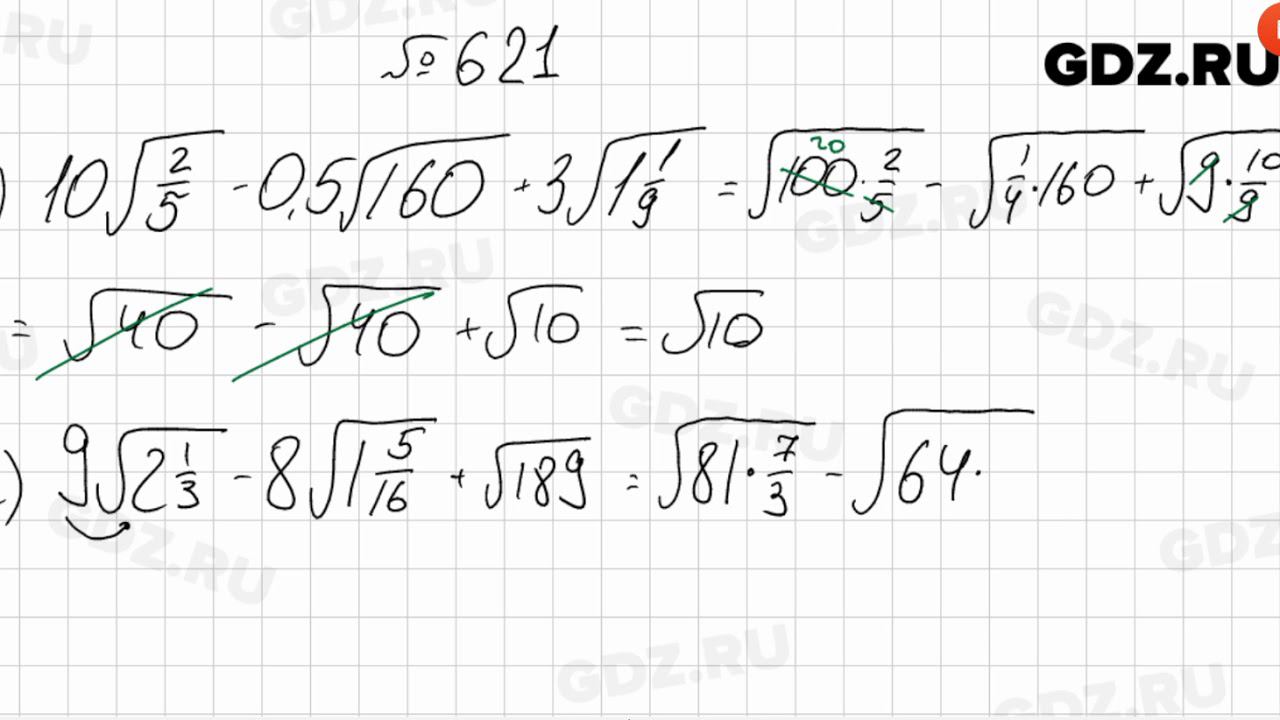 № 621
GDZ.RU
) 10√(2/5) - 0,5√160 + 3√(1 1/9) = √(100 · 2/5) - √(1/4 · 160) + √(9 · 10/9)
20
= √40 - √40 + √10 = √10
) 9√(2 1/3) - 8√(1 5/16) + √189 = √(81 · 7/3) - √(64 ·